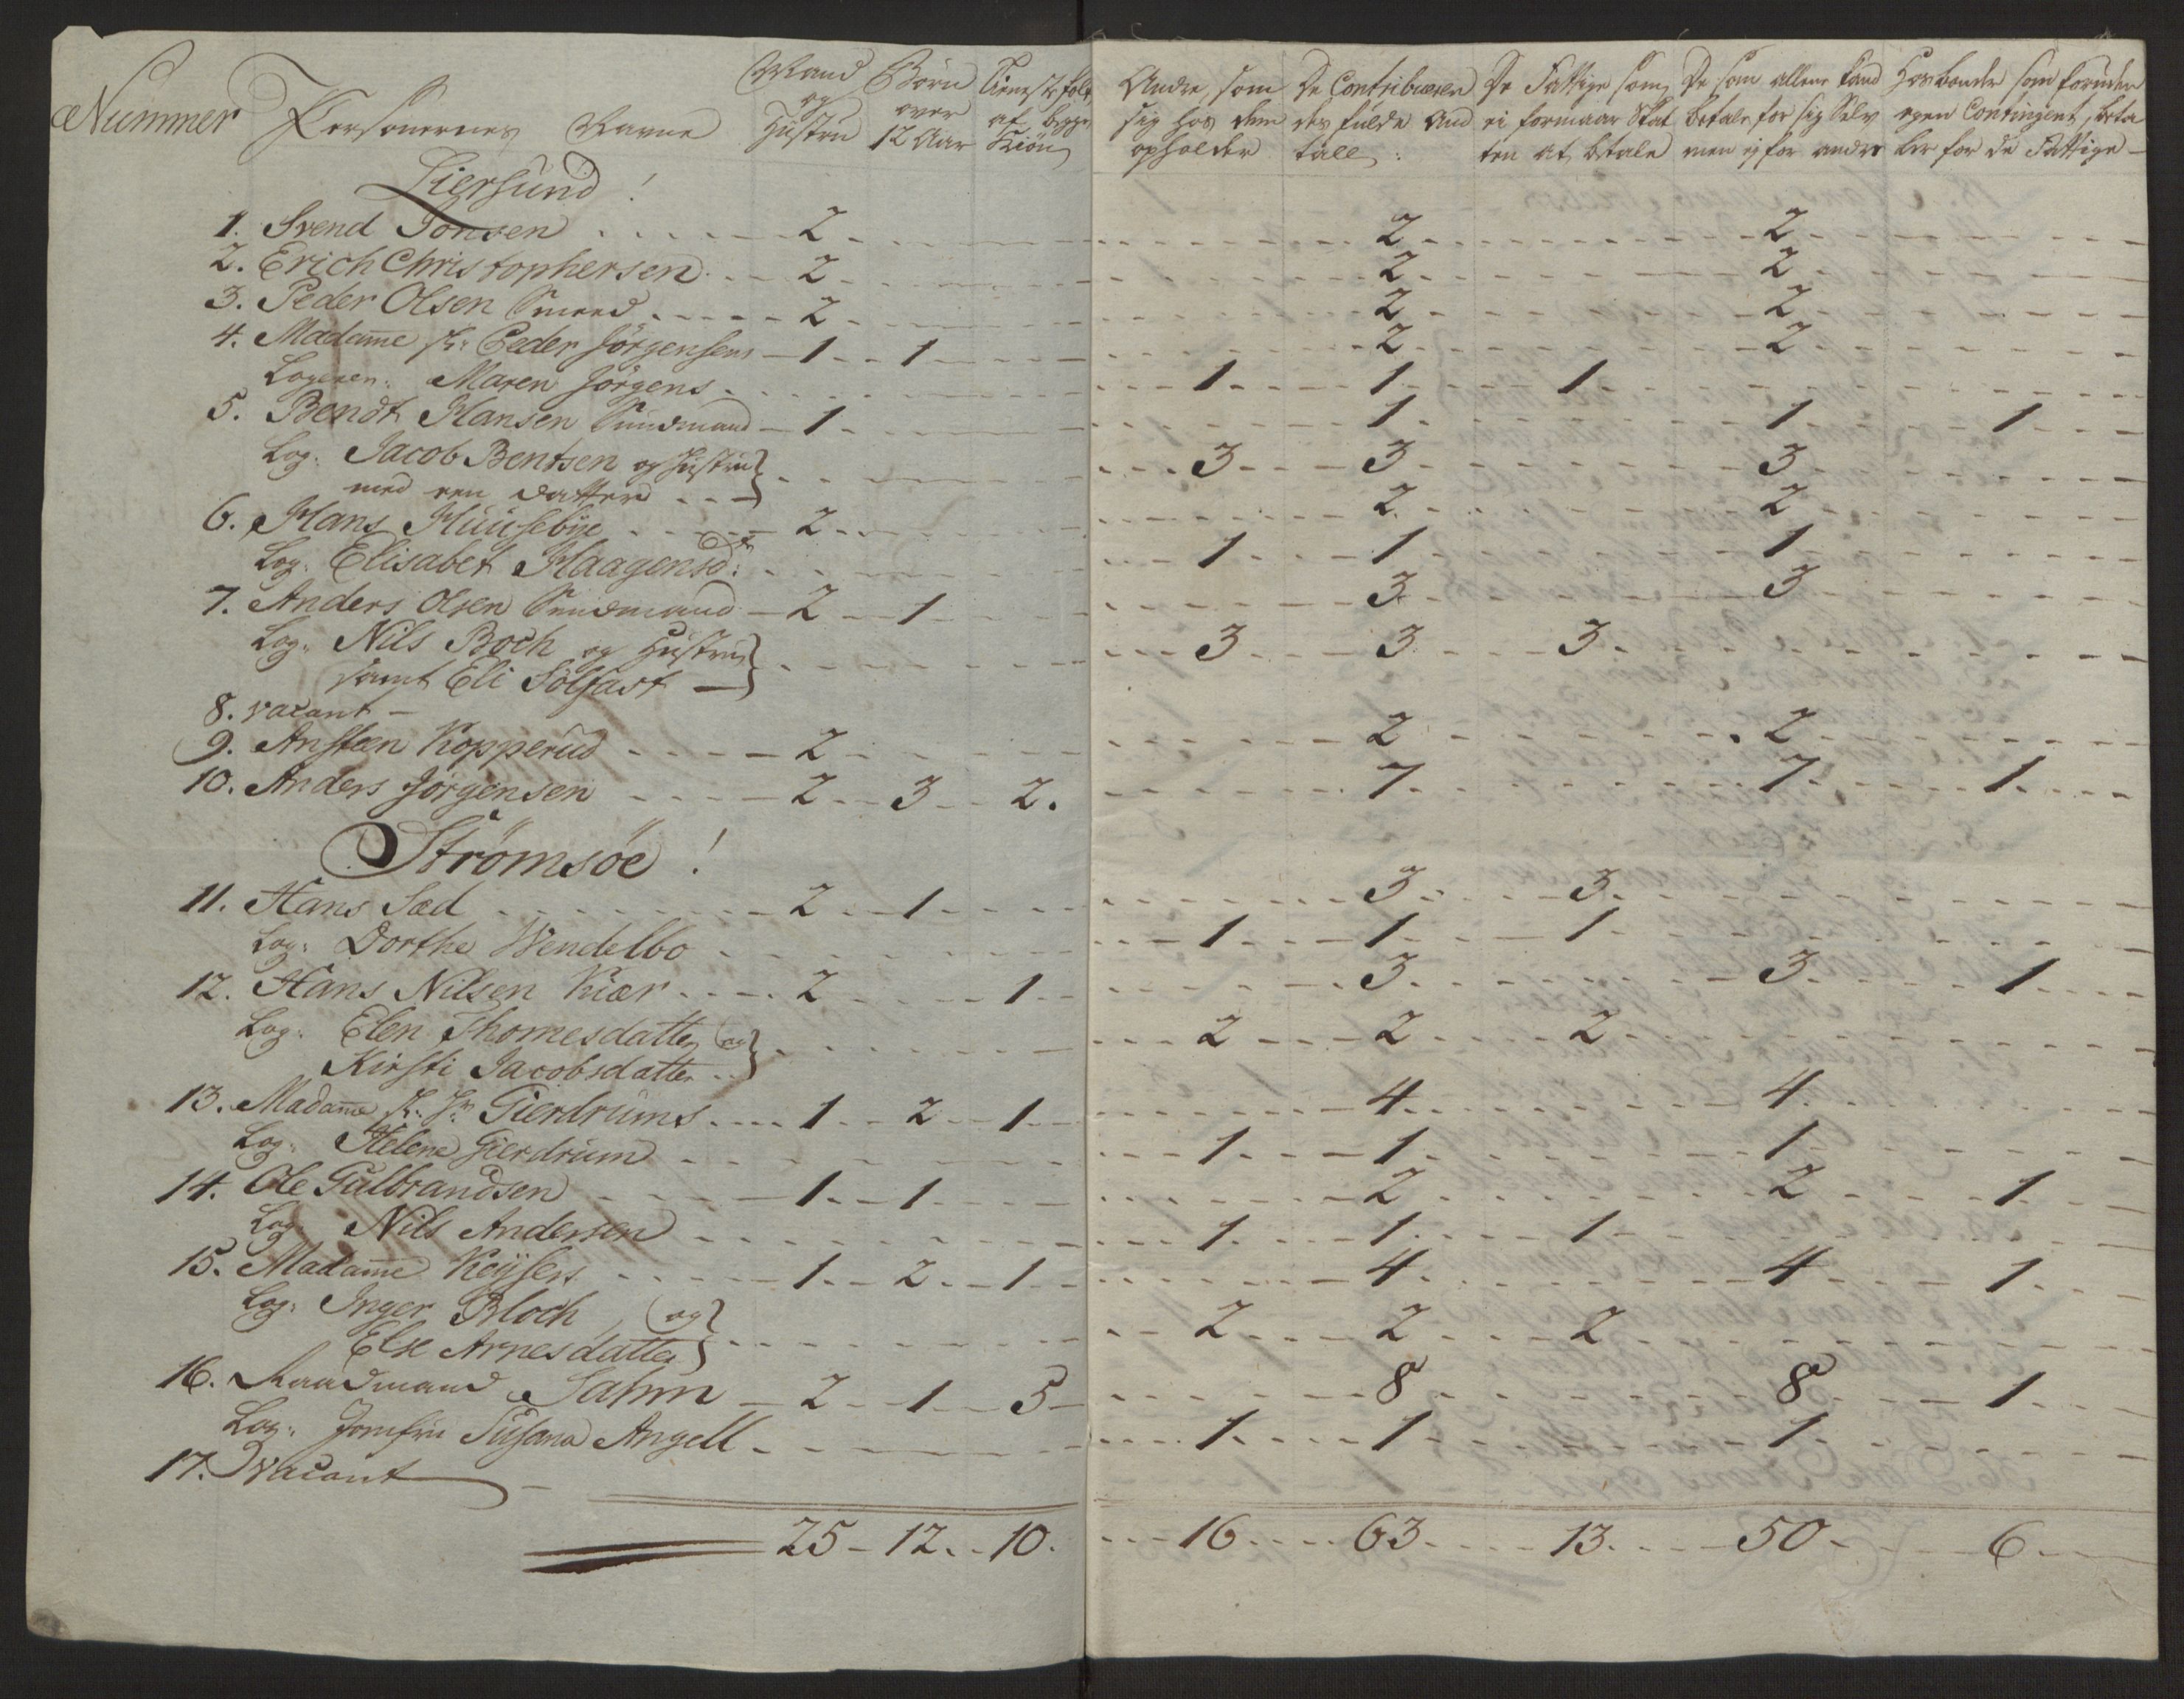 Nummer Personernes Navne Mand og Hustru Börn over 12 Aar Tieneste folk af begge Kiön Andre, som sig hos dem opholder De Contribuerendes fulde Andtall: De Fattige som ei formaar Skatten at betale De som allene kand betale for sig Selv men ej for andre Hosbonder som foruden egen Contingent, betaler for de Fattige
Liersund!
1. Svend Jonsen 2 2 2
2. Erich Christophersen 2 2 2
3. Peder Olsen Smed 2 2 2
4. Madame Sl: Peder Jörgensens 1 1 2 2
Logeren: Maren Jörgens 1 1 1
5. Bendt Hansen Sundmand 1 1 1 1
Log: Jacob Bentsen og Hustru
med een datter 3 3 3
6. Hans Huusebye 2 2 2
Log: Elisabet Haagensd: 1 1 1
7. Anders Olsen Sundmand 2 1 3 3
Log: Nils Boch og Hustru
samt Eli Solfast 3 3 3
8. vacant
9. Ansteen Kopperud 2 2 2
10. Anders Jörgensen 2 3 2. 7 7 1
Strömsöe!
11. Hans Sæd 2 1 3 3
Log: Dorthe Wendelbo 1 1 1
12. Hans Nilsen Kiær 2 1 3 3 1
Log: Elen Thomesdatter og
Kirsti Jacobsdatter 2 2 2
13. Madame Sl. Hr. Gierdrums 1 2 1 4 4
Log: Helene Gierdrum 1 1 1
14. Ole Gulbrandsen 1 1 2 2 1
Log Nils Andersen 1 1 1
15. Madame Keysers 1 2 1 4 4 1
Log: Inger Bloch, og
Else Arnesdatter 2 2 2
16. Raadmand Sahm 2 1 5 8 8 1
Log: Jomfru Susana Angell 1 1 1
17. vacant
25 12 10. 16 63 13 50 6